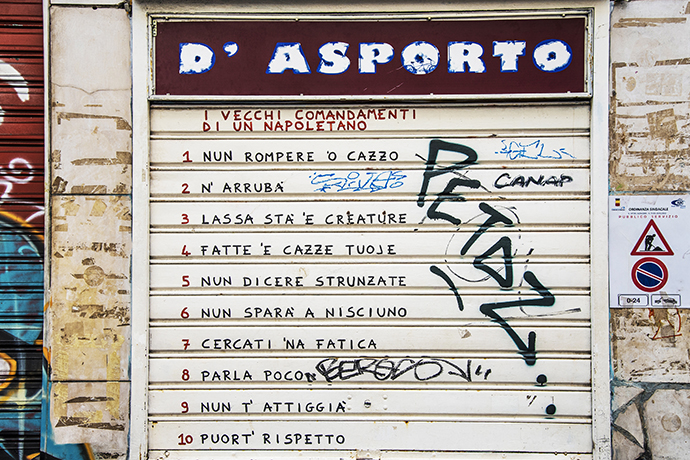 D' ASPORTO
I VECCHI COMANDAMENTI
DI UN NAPOLETANO
1 NUN ROMPERE 'O CAZZO
2 N' ARRUBÀ
CANAP
3 LASSA STA' 'E CRIATURE
4 FATTE 'E CAZZE TUOJE
5 NUN DICERE STRUNZATE
6 NUN SPARÀ A NISCIUNO
7 CERCATI 'NA FATICA
8 PARLA POCO
9 NUN T' ATTIGGIÀ
10 PUORT' RISPETTO
ORDINANZA SINDACALE
PUBBLICO SERVIZIO
0-24